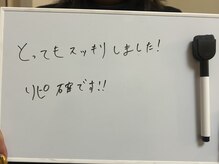 とってもスッキリしました!
リピ確です!!